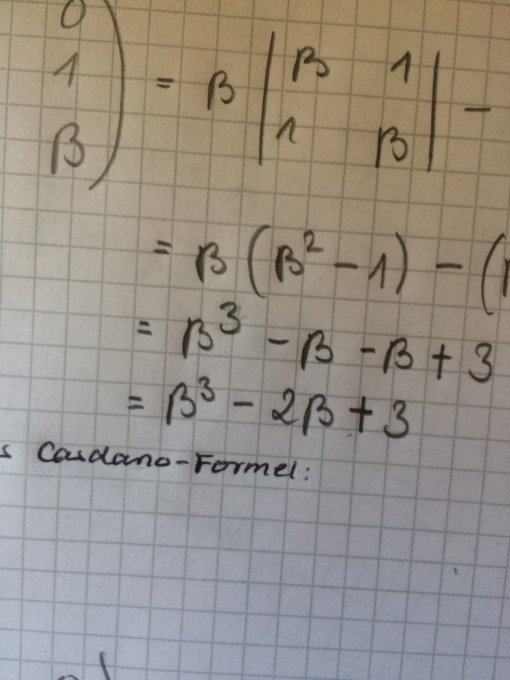 0
1 = β | β 1 | −
β | 1 β |
= β (β² − 1) − (
= β³ − β − β + 3
= β³ − 2β + 3
s Cardano-Formel: